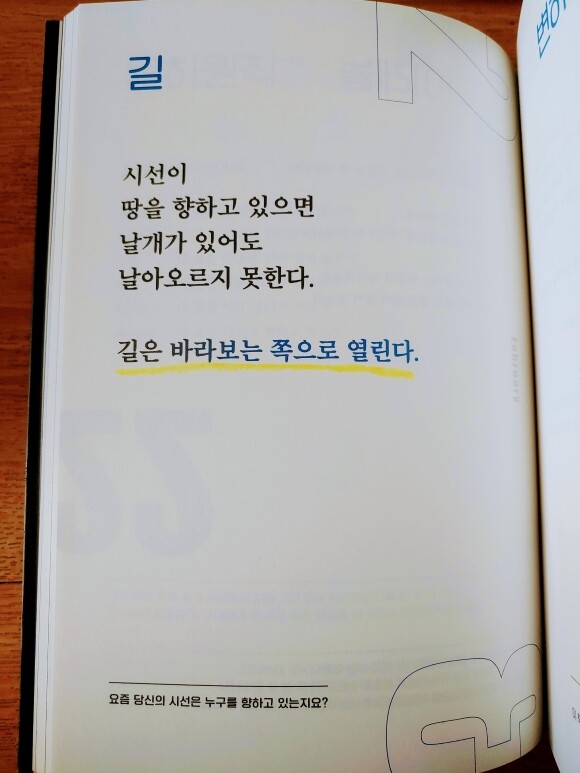 길
시선이
땅을 향하고 있으면
날개가 있어도
날아오르지 못한다.
길은 바라보는 쪽으로 열린다.
february
요즘 당신의 시선은 누구를 향하고 있는지요?